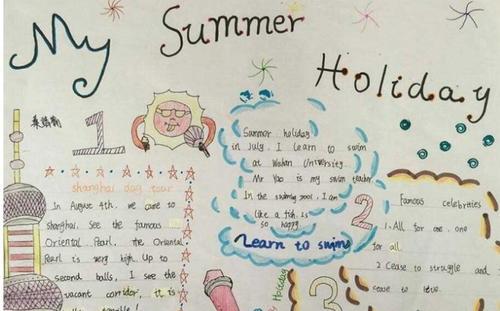 My Summer Holiday
1
shanghai day tour
In August 4th, we came to
Shanghai. See the famous
Oriental Pearl, the Oriental
Pearl is very high. Up to
second balls, I see the
vacant corridor, it is
Summer holiday
in July. I learn to swim
at Wuhan University.
Mr Yao is my swim teacher.
In the swimming pool, I am
like a fish. is
so happy
Learn to swim
2
Holiday
3
Famous celebrities
1. All for one, one
for all.
2 Cease to struggle and
cease to live.